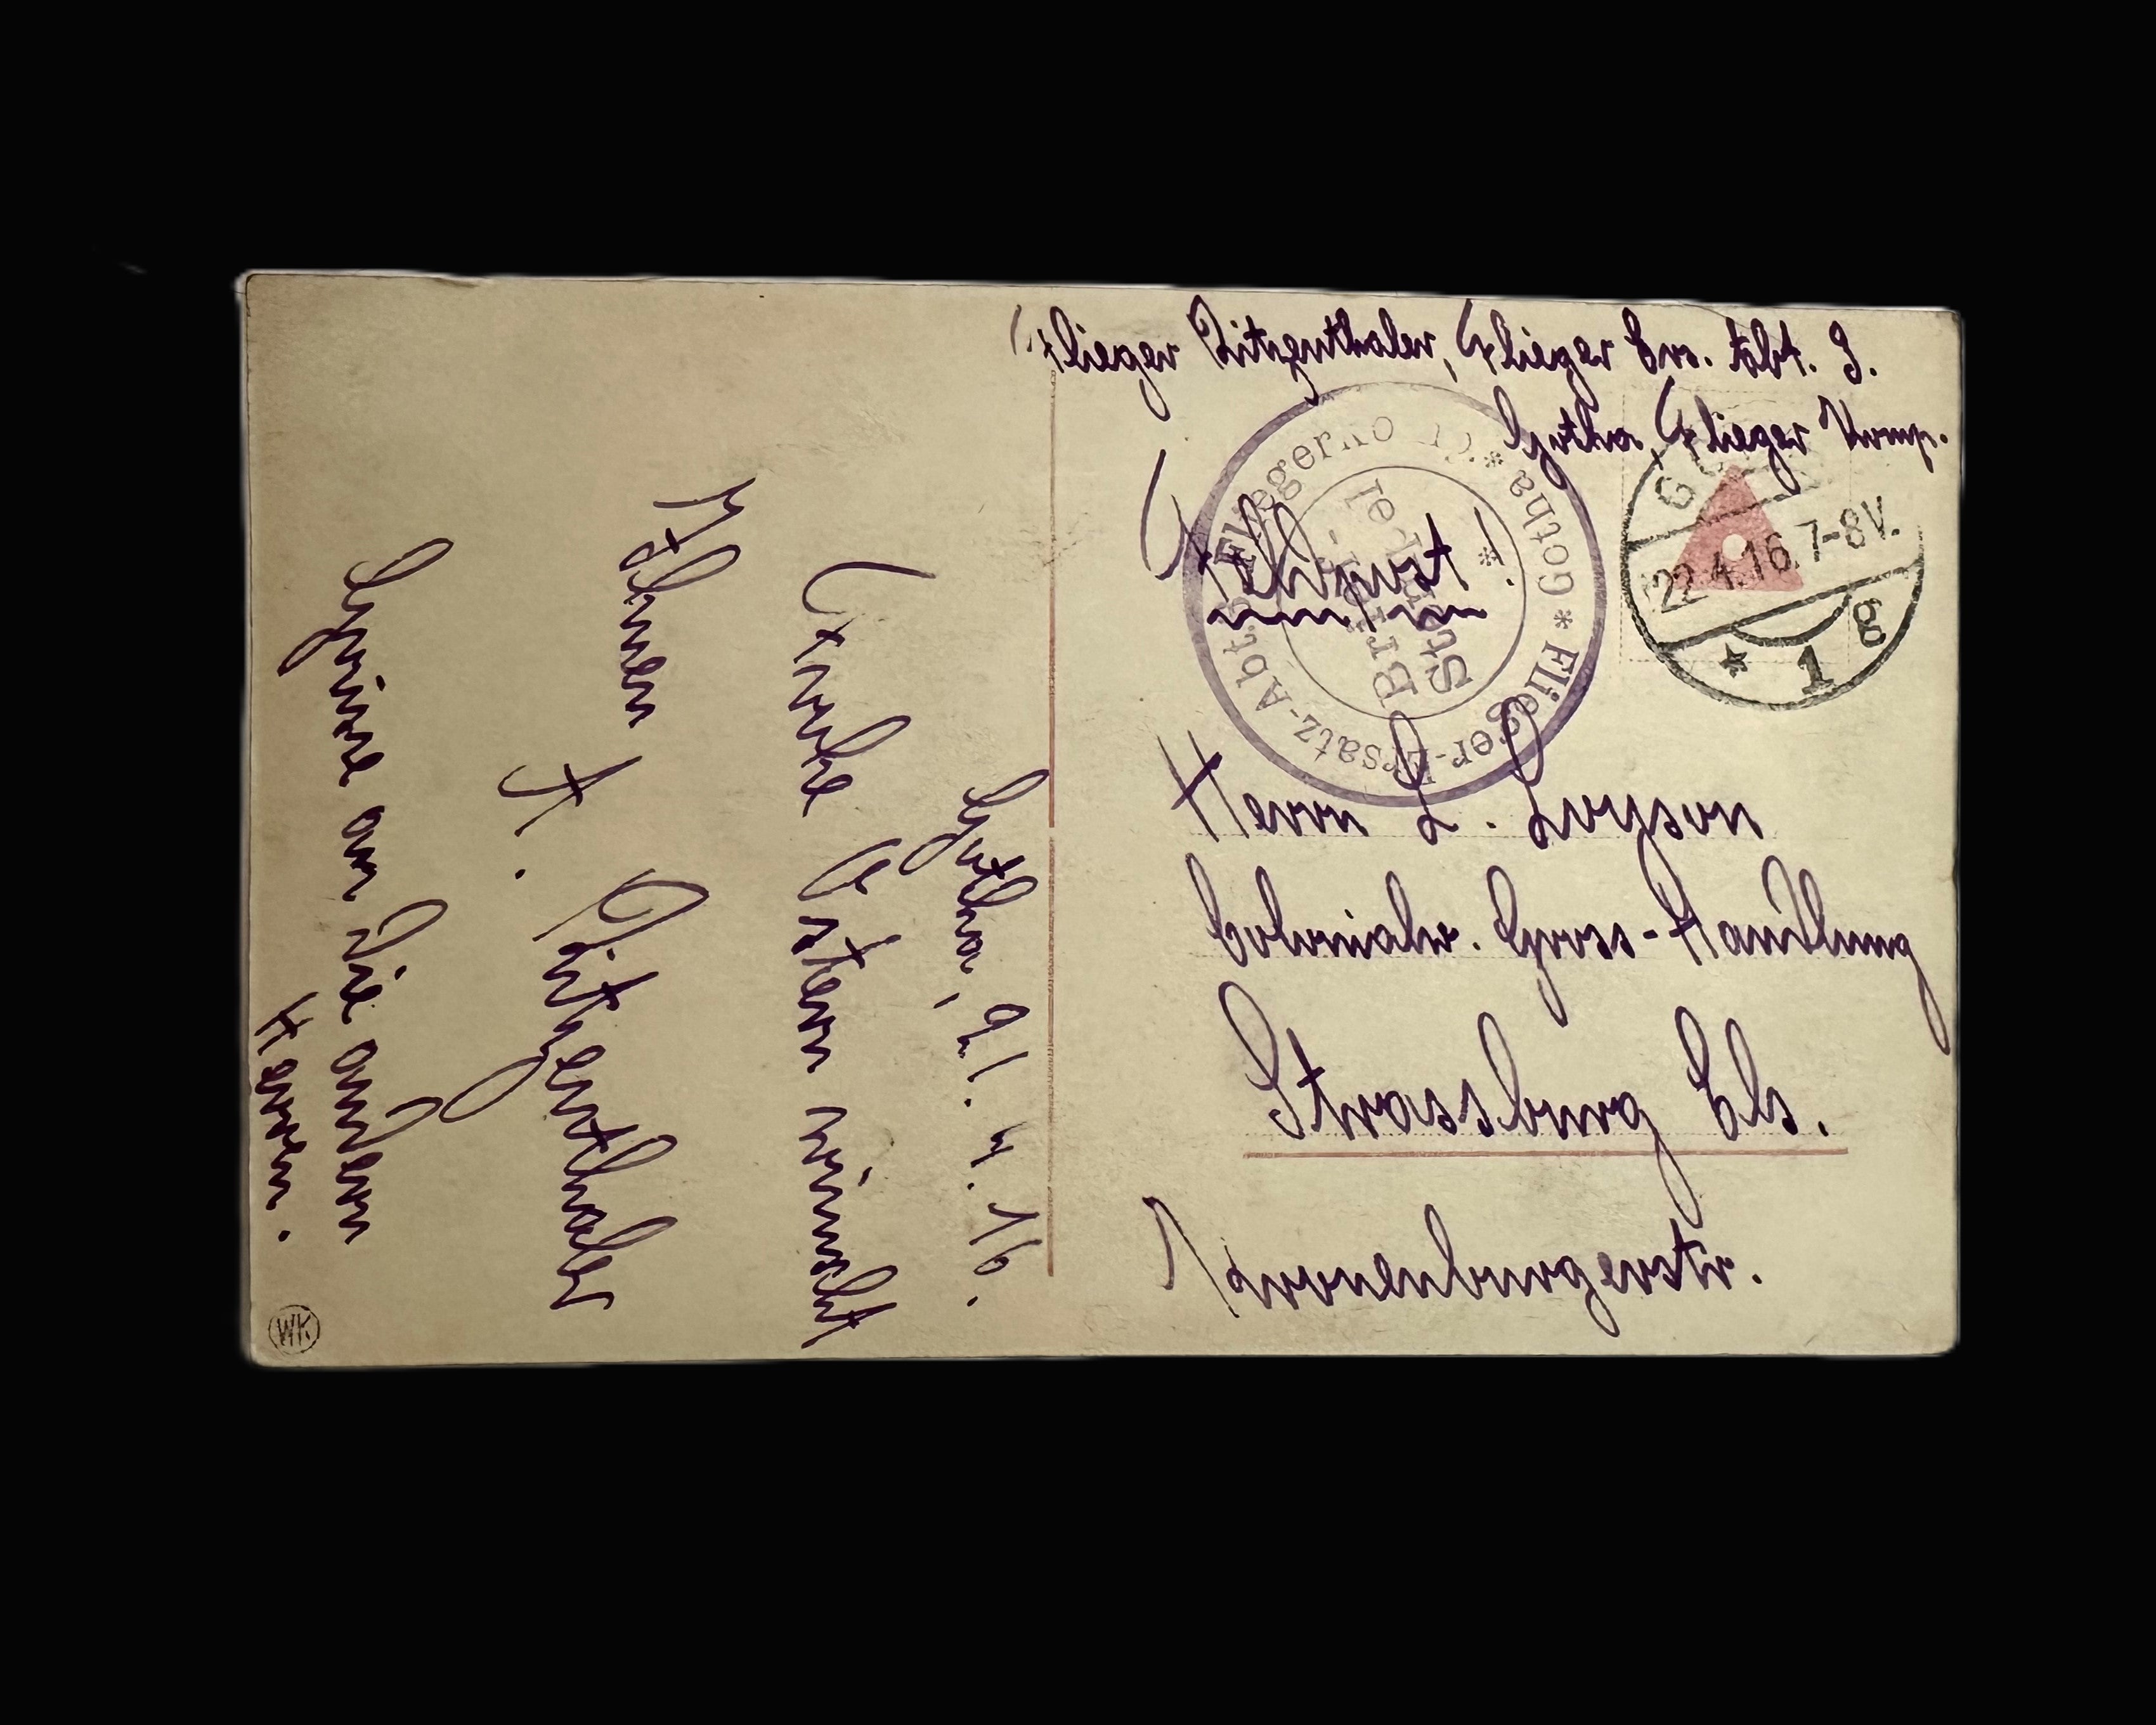 Flieger Ritzenthaler, Flieger Ers. Abt. 3.
Gotha, Flieger Komp.
Feldpost
Fliegerko * Gotha * Flieger-Ersatz-Abt.
Brief-
Stempel
22.4.16. 7-8V.
* 1 g
Herrn L. Luyson
Colonialw. Gross-Handlung
Strassburg Els.
Kronenburgerstr.
Gotha, 21. 4. 16.
Frohe Ostern wünscht
Ihnen A. Ritzenthaler
Grüsse an die andern
Herren.
WK